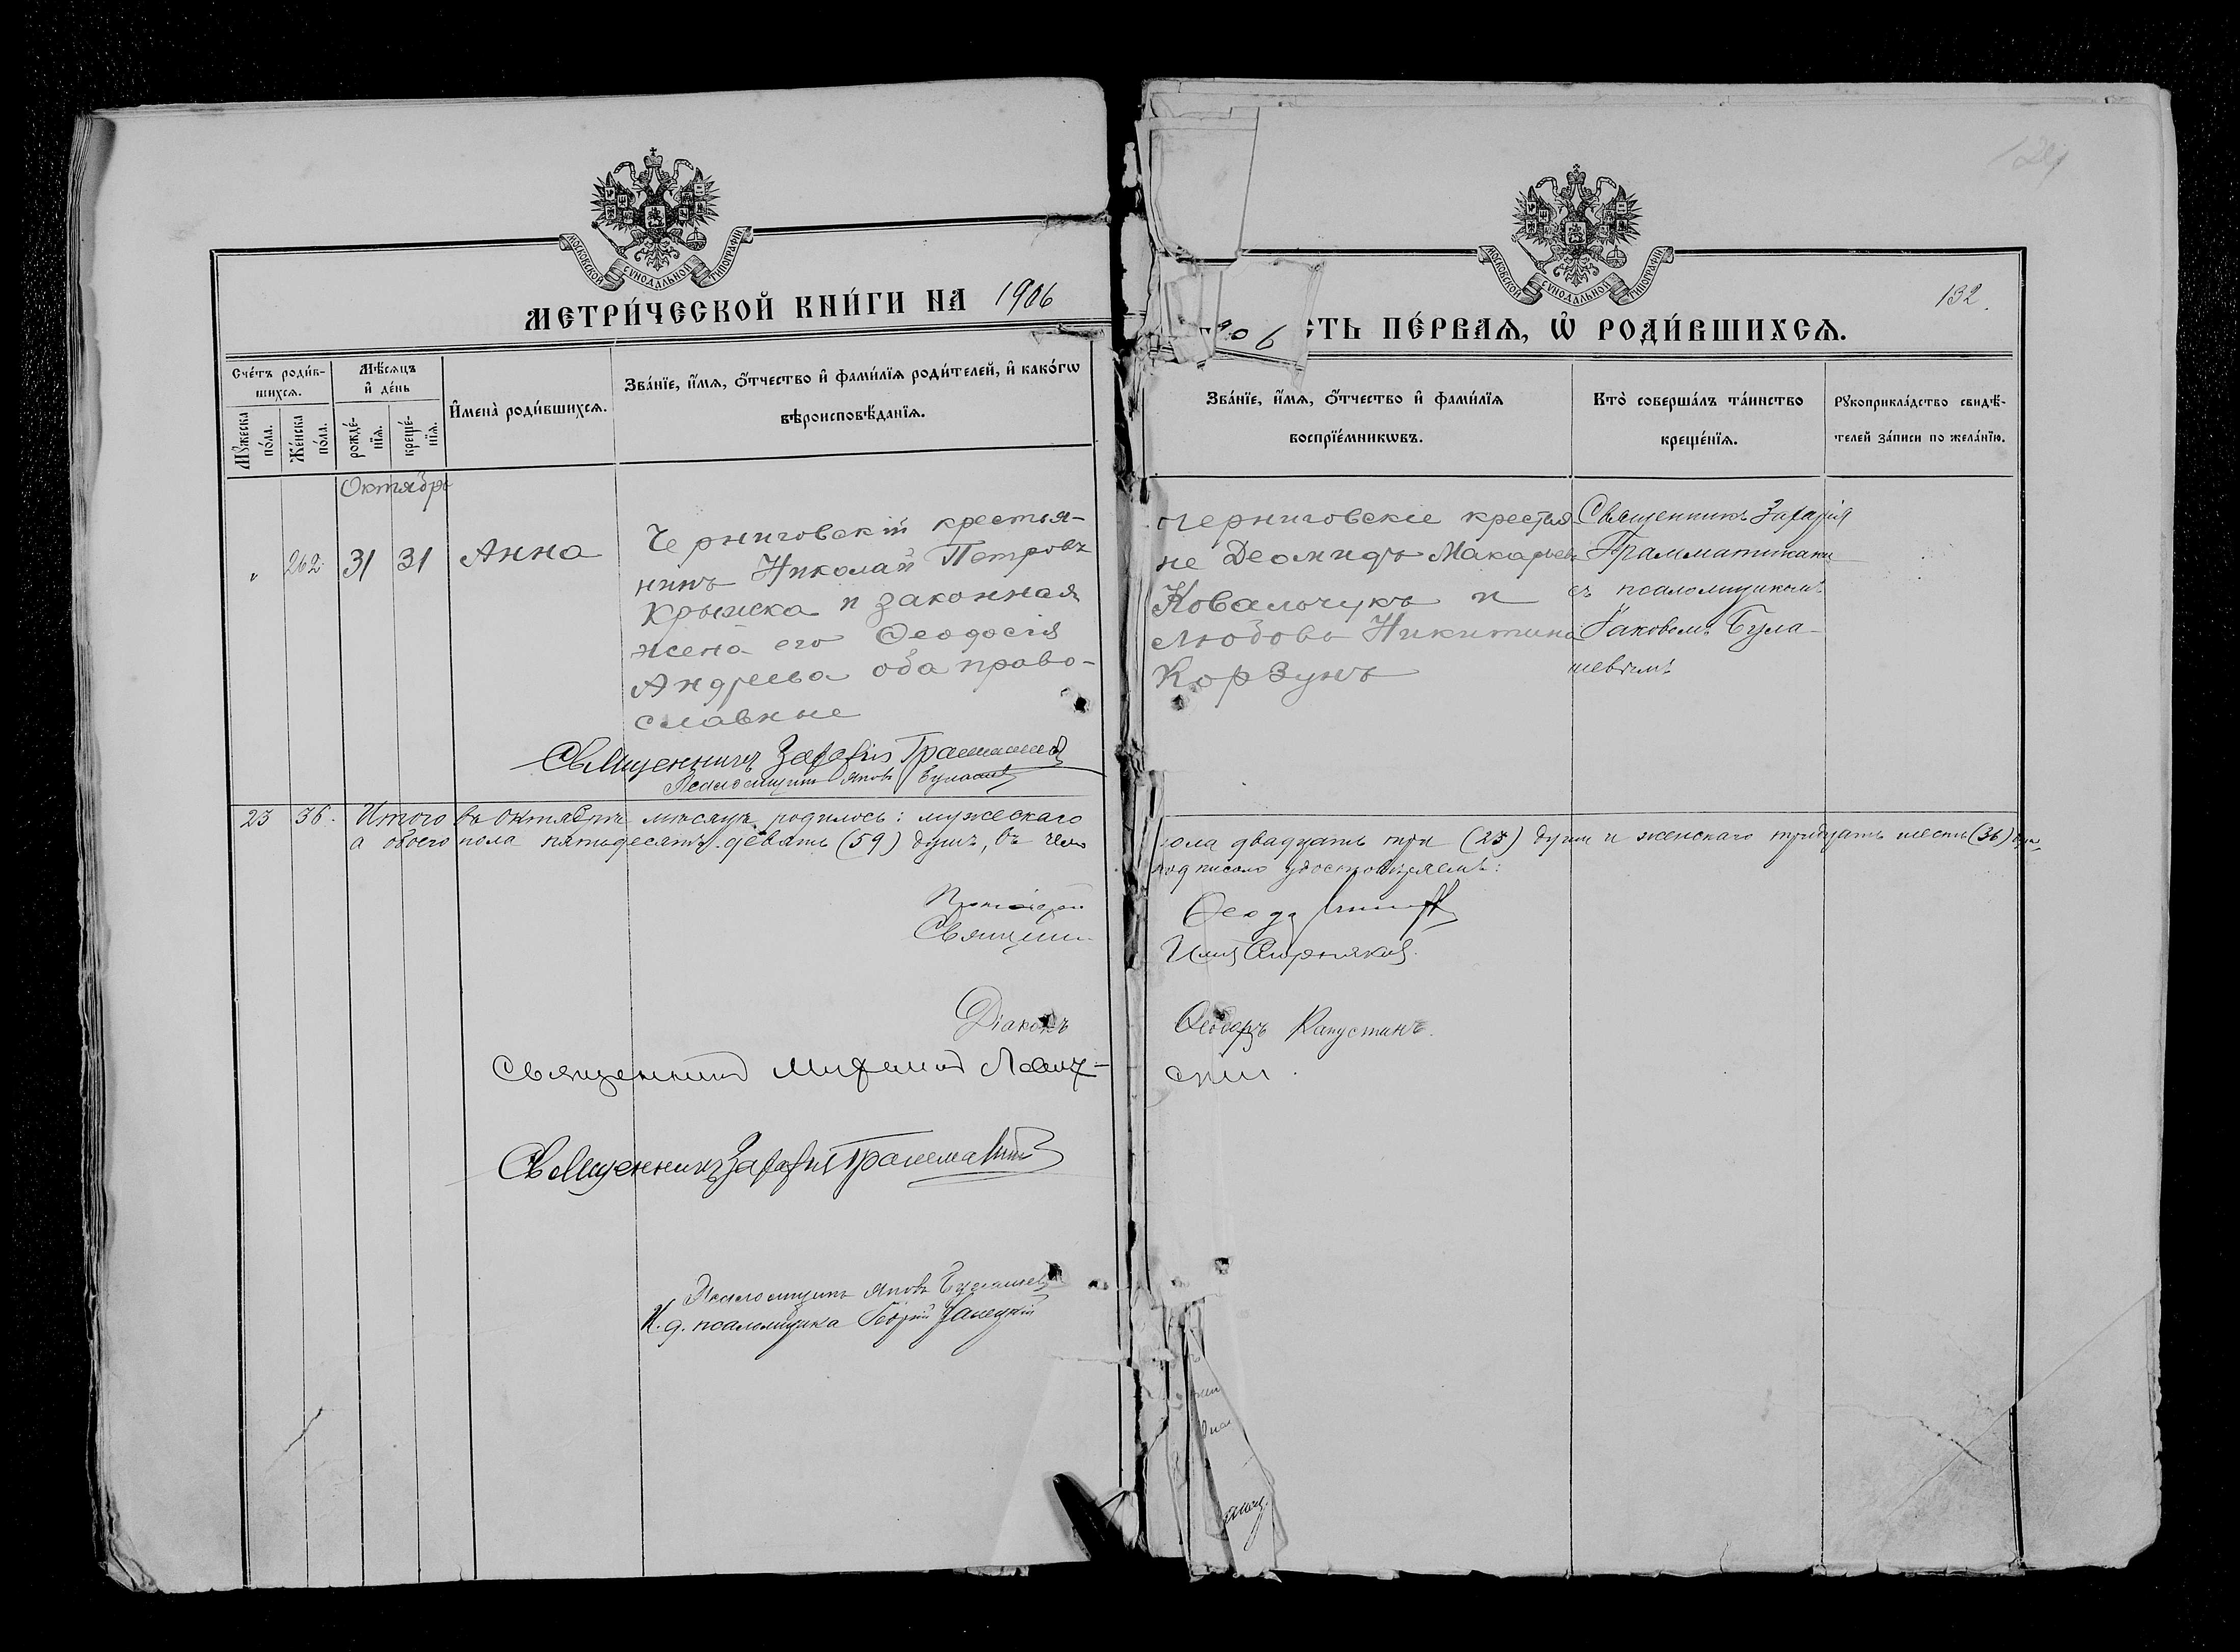 МОСКОВСКОЙ СѴНОДАЛЬНОЙ ТИПОГРАФІИ
МЕТРИ́ЧЕСКОЙ КНИ́ГИ НА 1906
Сче́тъ роди́в-
шихсѧ.
Мꙋ́жеска по́ла.
Же́нска по́ла.
Мѣ́сѧцъ
и҆ де́нь
рожде́-
нїѧ.
креще́-
нїѧ.
И҆мена̀ роди́вшихсѧ.
Зва́нїе, и҆́мѧ, ѻ҆́тчество и҆ фами́лїѧ роди́телей, и҆ како́гѡ
вѣроисповѣ́данїѧ.
Октябрь
" 262 31 31 Анна
Черниговскій крестья-
нинъ Николай Петровъ
Крыжка и законная
жена его Ѳеодосія
Андреева оба право-
славные
Священникъ Захарія
Псаломщикъ Яковъ
23 36. Итого въ Октябрѣ мѣсяцѣ родилось: мужескаго
а обоего пола пятьдесятъ девять (59) душъ, въ чемъ
Священ
Діаконъ
Священникъ
Священникъ Захарія
Псаломщикъ Яковъ
И. д. псаломщика
МОСКОВСКОЙ СѴНОДАЛЬНОЙ ТИПОГРАФІИ
132.
906
СТЬ ПЕ́РВАѦ, Ѡ҆ РОДИ́ВШИХСѦ.
Зва́нїе, и҆́мѧ, ѻ҆́тчество и҆ фами́лїѧ
воспрїе́мникѡвъ.
Кто̀ соверша́лъ та́инство
креще́нїѧ.
Рꙋкоприкла́дство свидѣ́-
телей за́писи по жела́нїю.
Черниговскіе крестья-
не Деомидъ Макарьевъ
Ковальчукъ и
Любовь Никитина
Корзунъ
Священникъ Захарія
Грамматикаки
съ псаломщикомъ
Іаковомъ Була-
шевымъ
пола двадцать три (23) души и женскаго тридцать шесть (36) душъ,
подписомъ удостовѣряемъ:
Ѳеодоръ Капустинъ.